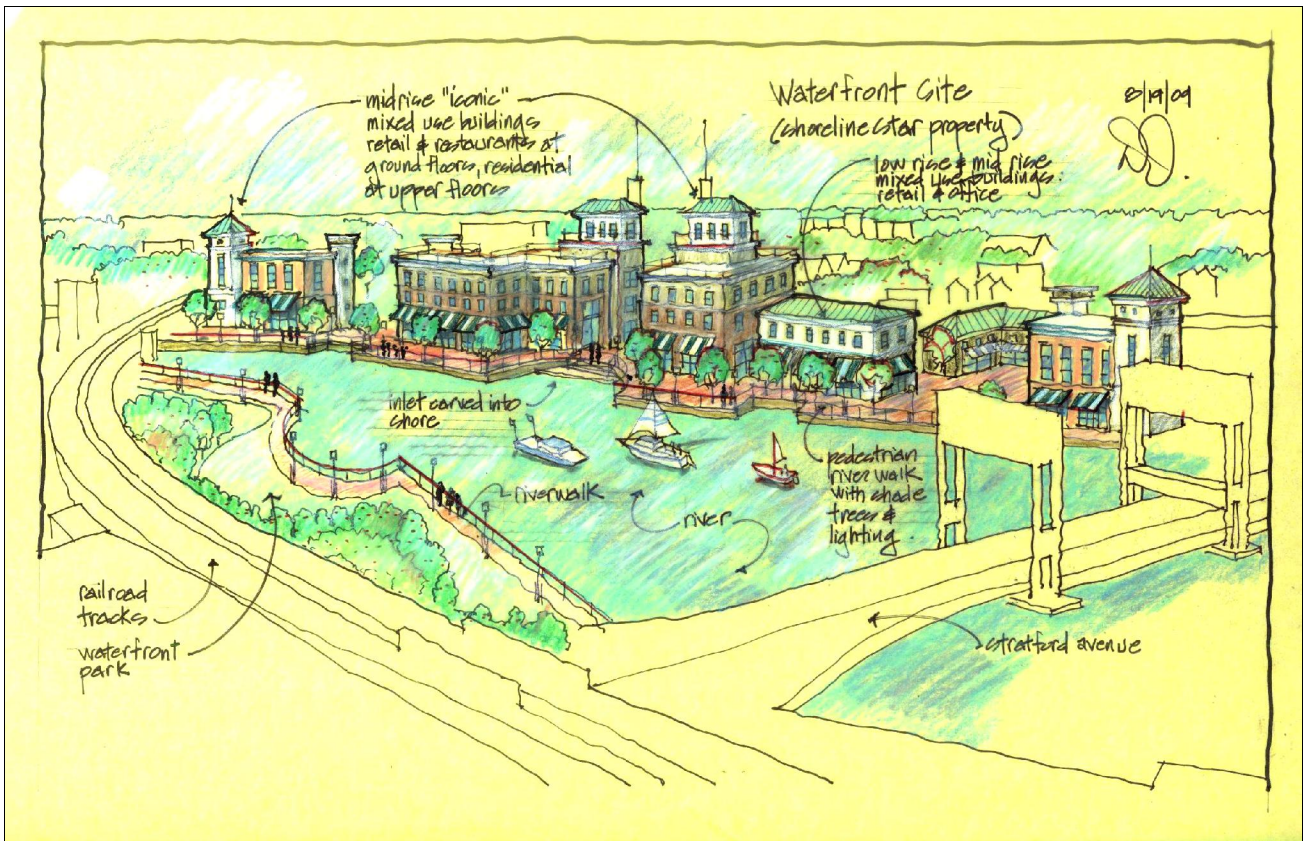 midrise "iconic"
mixed use buildings
retail & restaurants at
ground floors, residential
at upper floors
Waterfront Site
(shoreline star property)
8/19/09
low rise & mid rise
mixed use buildings:
retail & office
inlet carved into
shore
riverwalk
river
pedestrian
river walk
with shade
trees &
lighting.
railroad
tracks
waterfront
park
stratford avenue